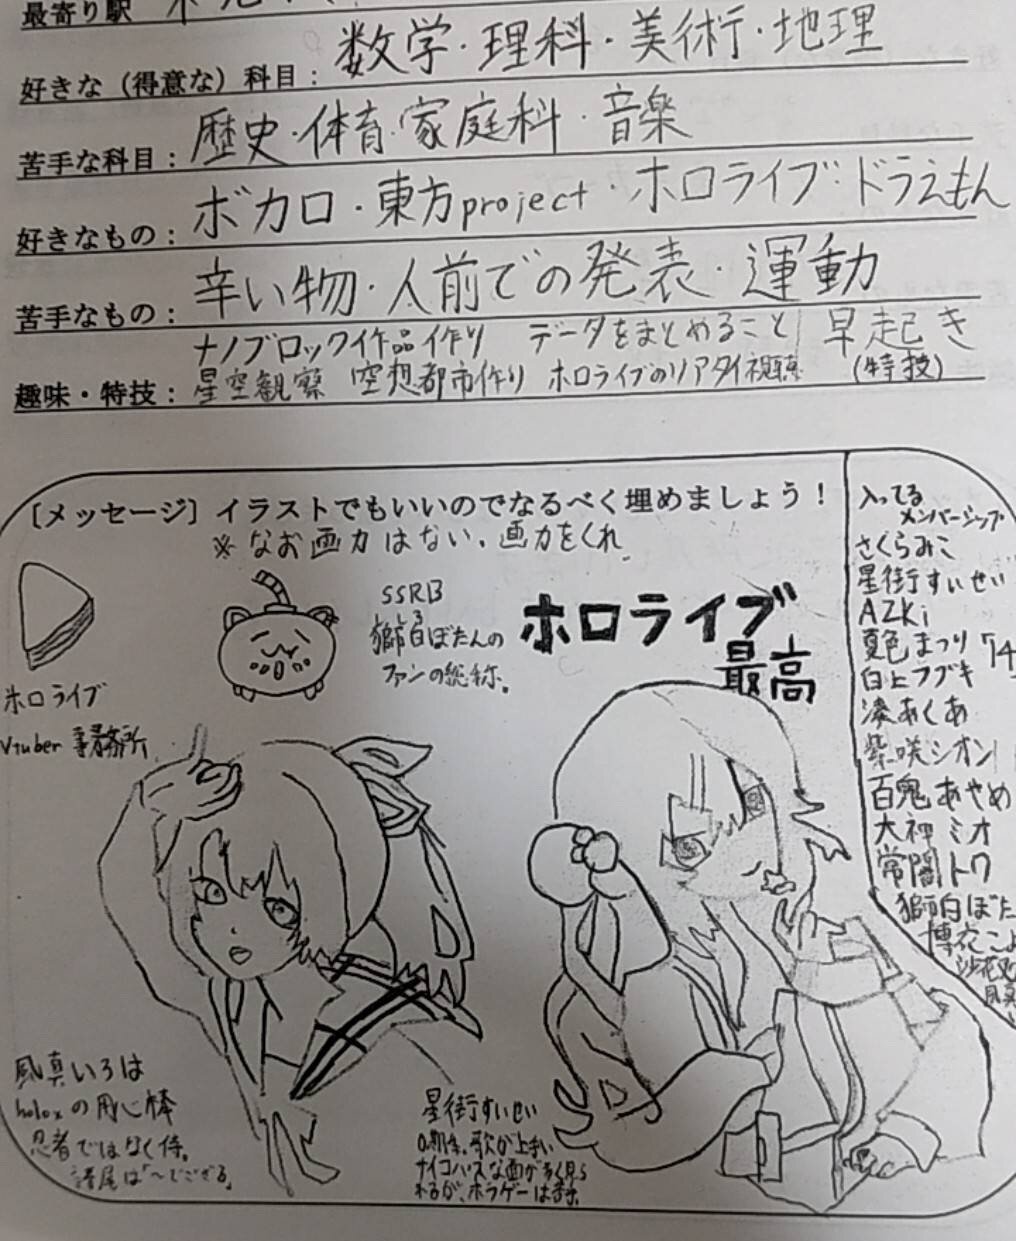 最寄り駅
好きな（得意な）科目： 数学・理科・美術・地理
苦手な科目： 歴史・体育・家庭科・音楽
好きなもの： ボカロ・東方project・ホロライブ・ドラえもん
苦手なもの： 辛い物・人前での発表・運動
ナノブロック作品作り データをまとめること 早起き
趣味・特技： 星空観察 空想都市作り ホロライブのリアタイ視聴 (特技)
［メッセージ］イラストでもいいのでなるべく埋めましょう！
※なお画力はない、画力をくれ
SSRB
獅白ぼたんの
ファンの総称。
ホロライブ
最高
ホロライブ
Vtuber 事務所
入ってる
メンバーシップ
さくらみこ
星街すいせい
AZKi
夏色まつり
白上フブキ
湊あくあ
紫咲シオン
百鬼あやめ
大神ミオ
常闇トワ
獅白ぼた
博衣こよ
沙花叉
風真
風真いろは
holoxの用心棒
忍者ではなく侍。
語尾は「〜でござる」
星街すいせい
0期生。歌が上手い
サイコパスな面が多く見ら
れるが、ホラゲーは苦手。